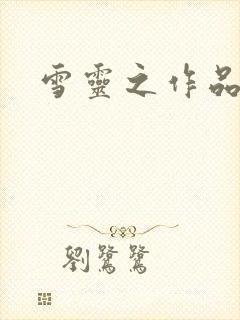 雪靈之作品
劉鷺鷺